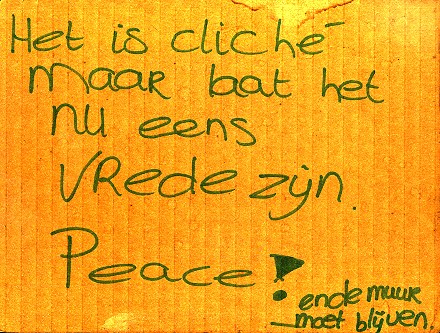 Het is cliché
maar laat het
nu eens
vrede zijn.
Peace!
ende muur
moet blijven.